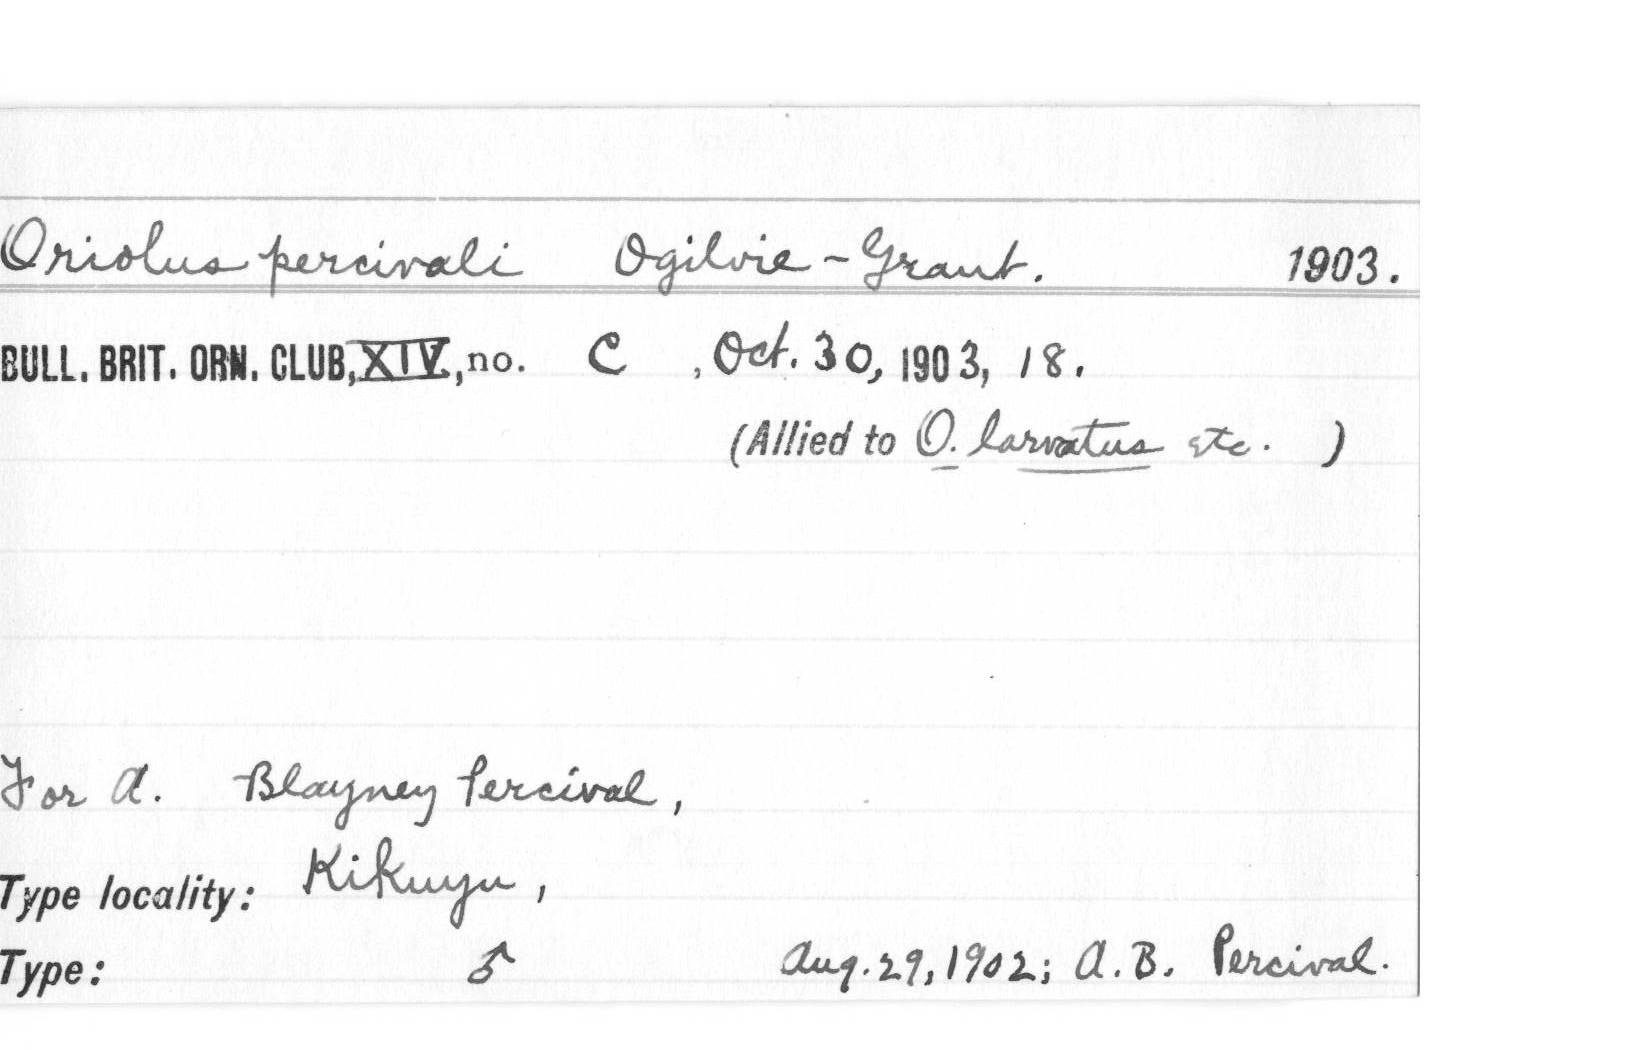 Oriolus percivali Ogilvie-Grant. 1903.
BULL. BRIT. ORN. CLUB, XIV, no. C , Oct. 30, 1903, 18.
(Allied to O. larvatus etc. )
For A. Blayney Percival,
Type locality: Kikuyu,
Type: ♂ Aug. 29, 1902; A. B. Percival.